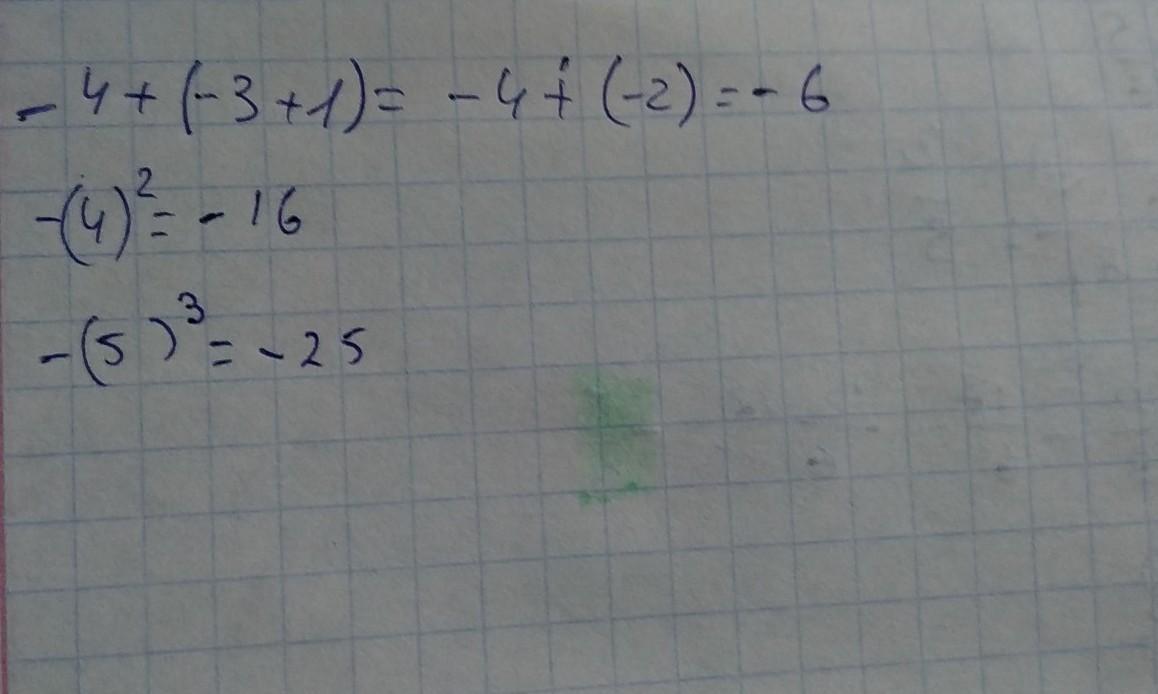 - 4 + (-3 +1) = - 4 + (-2) = - 6
-(4)² = - 16
-(5)³ = - 25